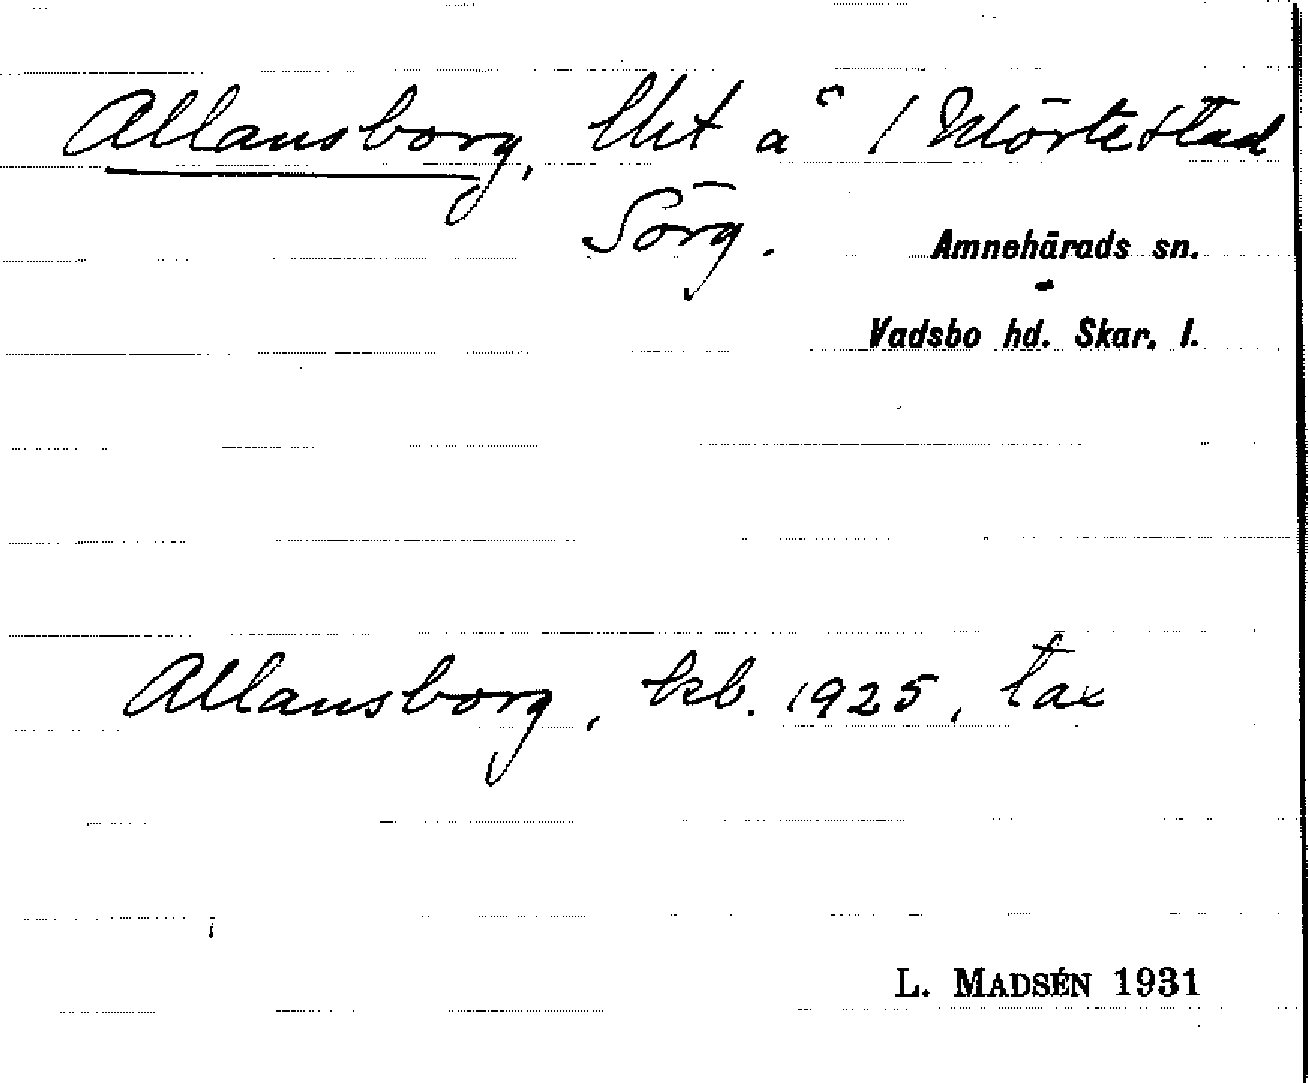 Allansborg, lht å 1 Mörtestad
Sörg.
Amnehärads sn.
Vadsbo hd. Skar. l.
Allansborg, kb. 1925, tax
L. MADSÉN 1931